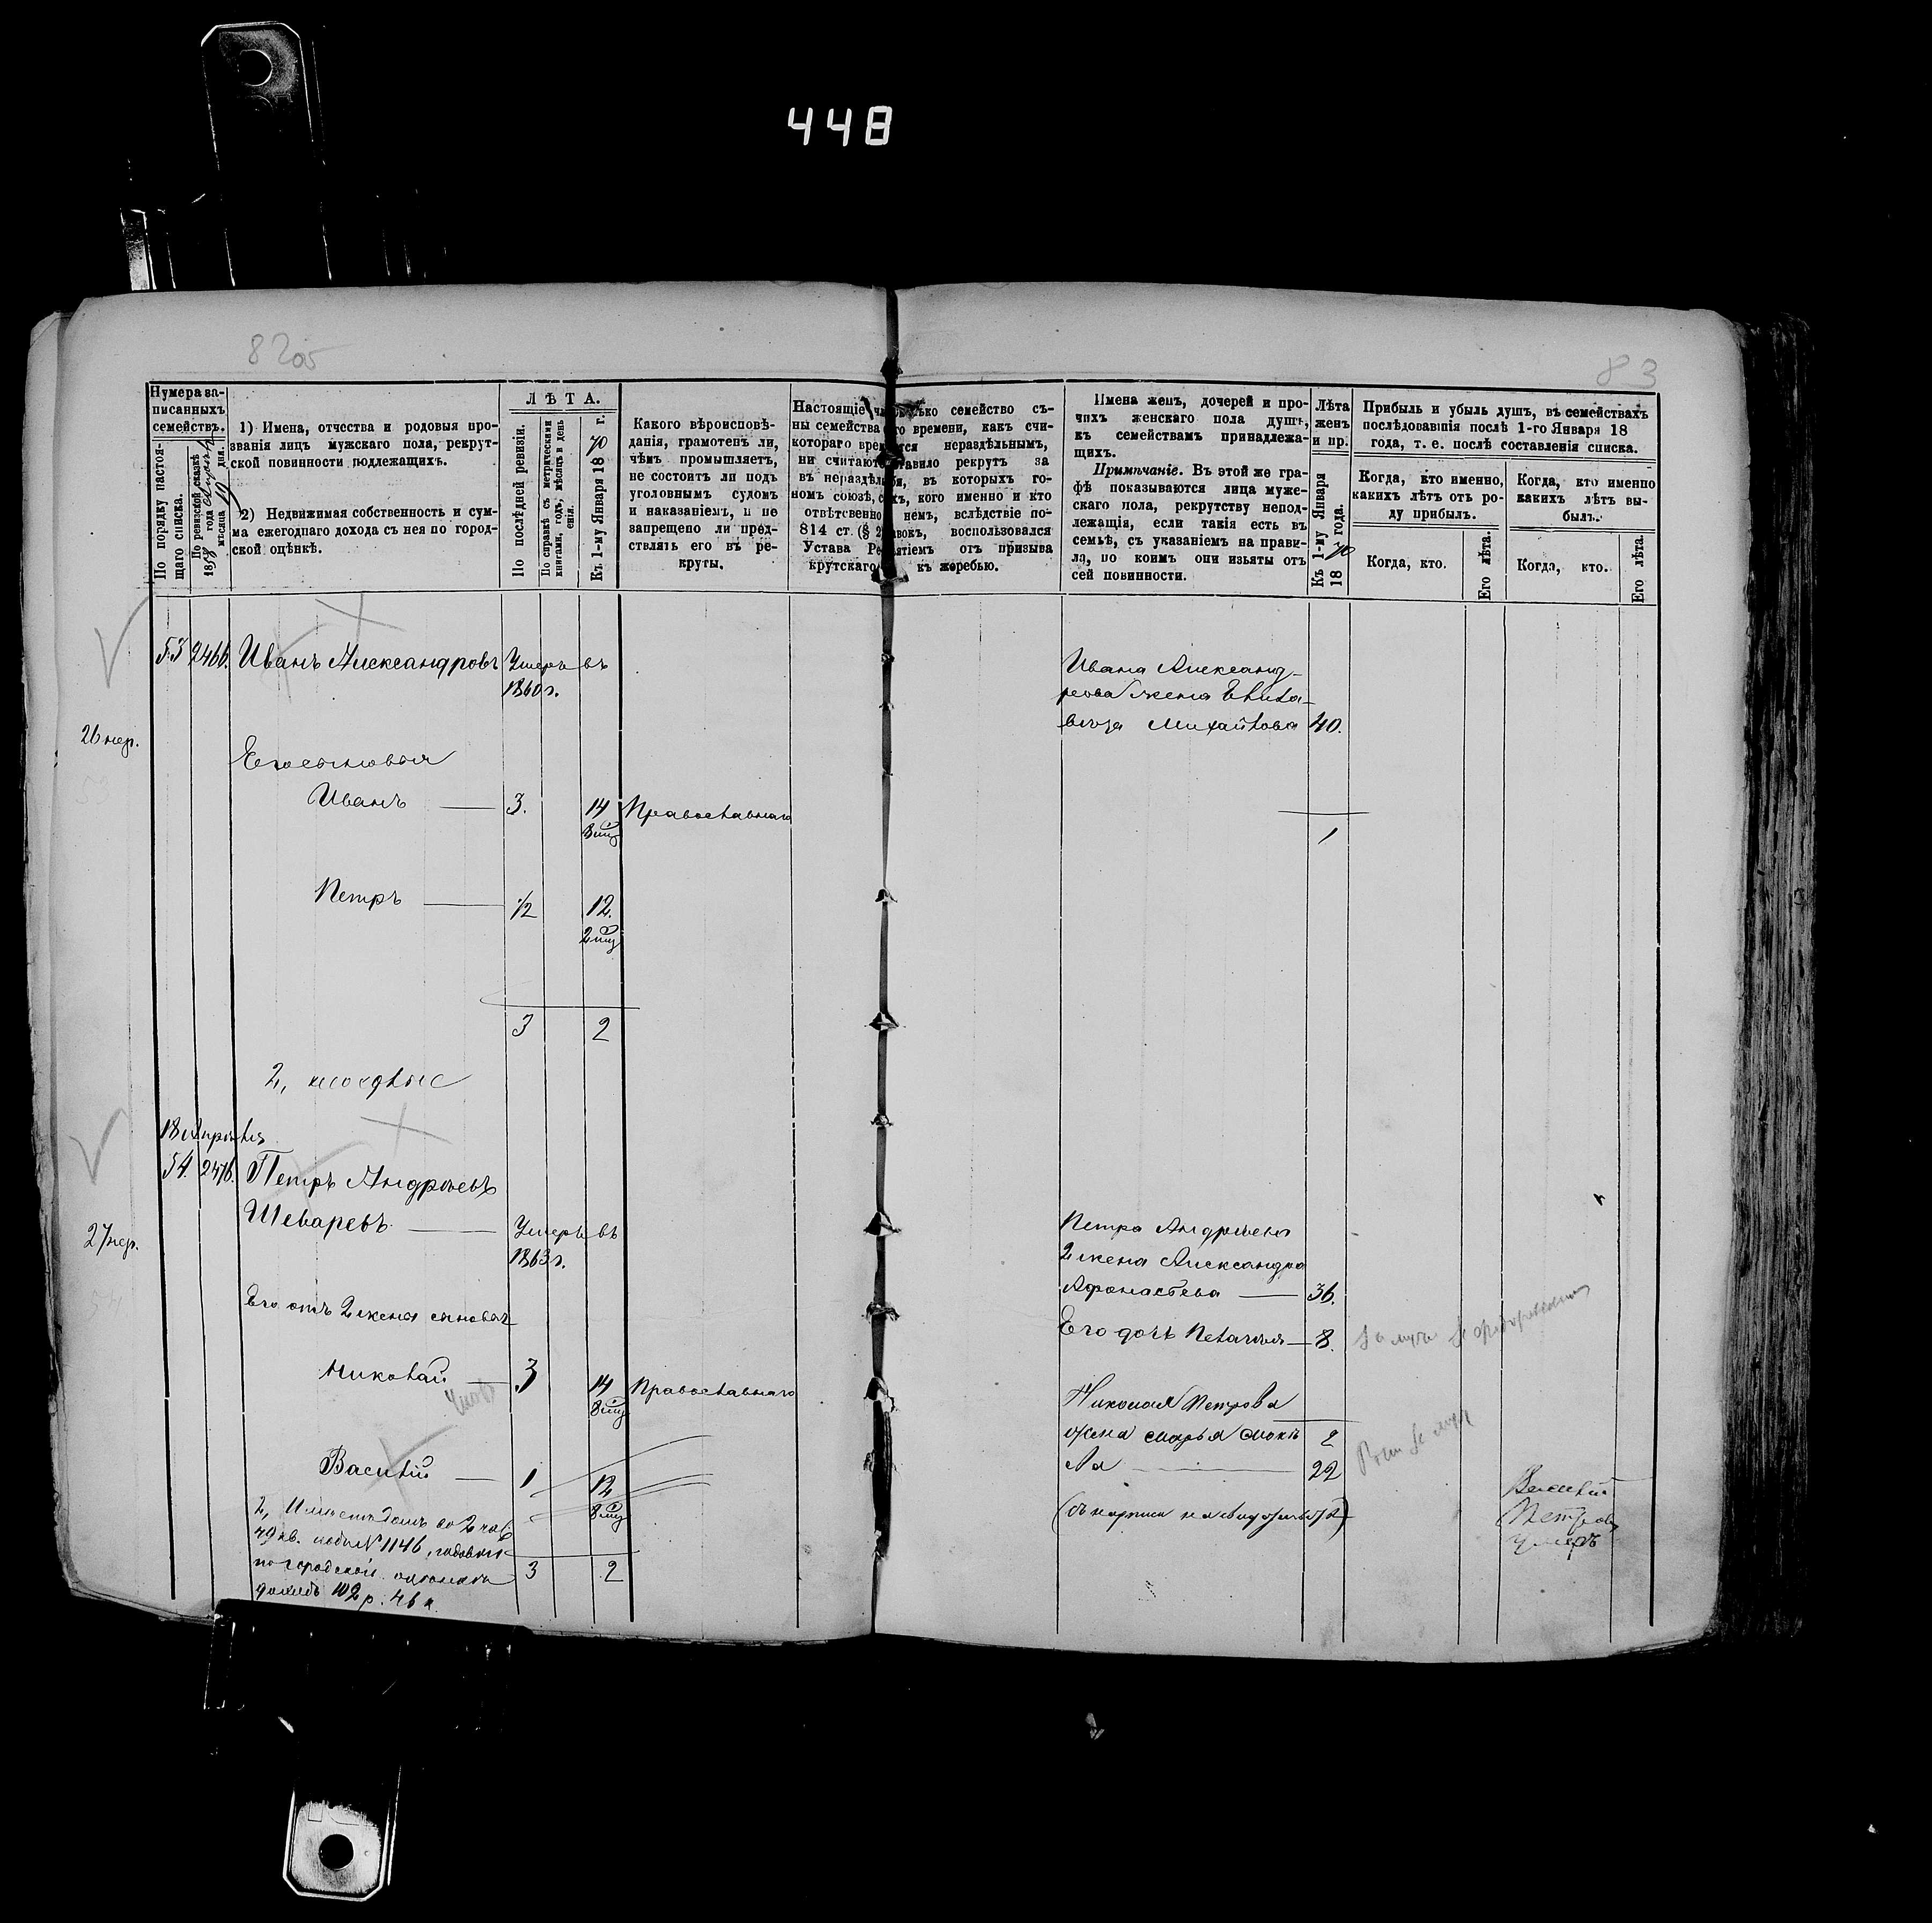 448
82об
83
Нумера за-
писанныхъ
семействъ.
По порядку настоя-
щаго списка.
По ревизской сказкѣ
1858 года
мѣсяца 10 дня.
1) Имена, отчества и родовыя про-
званія лицъ мужскаго пола, рекрут-
ской повинности подлежащихъ.
2) Недвижимая собственность и сум-
ма ежегоднаго дохода съ нея по город-
ской оцѣнкѣ.
ЛѢТА.
По послѣдней ревизіи.
По справкѣ съ метрическими
книгами, годъ, мѣсяцъ и день
Къ 1-му Января 1870 г.
Какого вѣроисповѣ-
данія, грамотенъ ли,
чѣмъ промышляетъ,
не состоитъ ли подъ
уголовнымъ судомъ
и наказаніемъ, и не
запрещено ли пред-
ствлять его въ ре-
круты.
Настоящіе чл
ны семейства
котораго вре
ни считают
въ нераздѣль
номъ союзѣ, с
отвѣтственно
814 ст. (§ 2
Устава Ре
крутскаго
лько семейство съ-
го времени, какъ счи-
тся нераздѣльнымъ,
тавило рекрутъ за
я, въ которыхъ го-
хъ, кого именно и кто
немъ, вслѣдствіе по-
вокъ, воспользовался
ятіемъ отъ призыва
къ жеребью.
Имена женъ, дочерей и про-
чихъ женскаго пола душъ,
къ семействамъ принадлежа-
щихъ.
Примѣчаніе. Въ этой же гра-
фѣ показываются лица муже-
скаго пола, рекрутству непод-
лежащія, если такія есть въ
семьѣ, съ указаніемъ на прави-
ла, по коимъ они изъяты отъ
сей повинности.
Лѣта
женъ
и пр.
Къ 1-му Января
1870 года.
Прибыль и убыль душъ, въ семействахъ
послѣдовавшія послѣ 1-го Января 18
года, т. е. послѣ составленія списка.
Когда, кто именно,
какихъ лѣтъ отъ ро-
ду прибылъ.
Когда, кто именно
какихъ лѣтъ вы-
былъ.
Когда, кто.
Его лѣта.
Когда, кто.
Его лѣта.
53 2466. Иванъ Александровъ Умеръ въ
1860 г.
Ивана Александ-
рова жена Елиза-
вета Михайлова 40.
26 пер.
Его сыновья
Иванъ — 3. 14 Православнаго
8 мц
1
Петръ — 1/2 12.
2 мц
3 2
18 Апрѣля
54. 2476. Петръ Андреевъ
Шеваревъ — Умеръ въ
1863 г.
27 пер.
Петра Андреева
2 жена Александра
Афонасьева — 36.
Его отъ 2 жены сыновья
Его дочь Пелагея — 8.
Николай — 3 14 Православнаго
8 мц
Николая Петрова
жена Марья 2
22
Василій — 1 12
8 мц
Василій
Петровъ
умеръ
2, Имѣетъ домъ во 2 час.
49 кв. подъ № 1146, годовой
по городской
доходъ 102 р. 46 к.
3 2